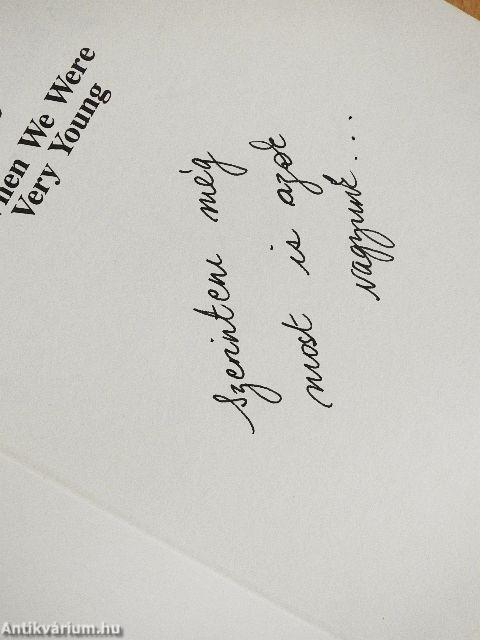 When We Were
Very Young
Szerintem még
most is azok
vagyunk...
Antikvárium.hu